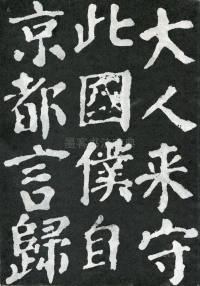 大人来守
此國僕自
京都言歸